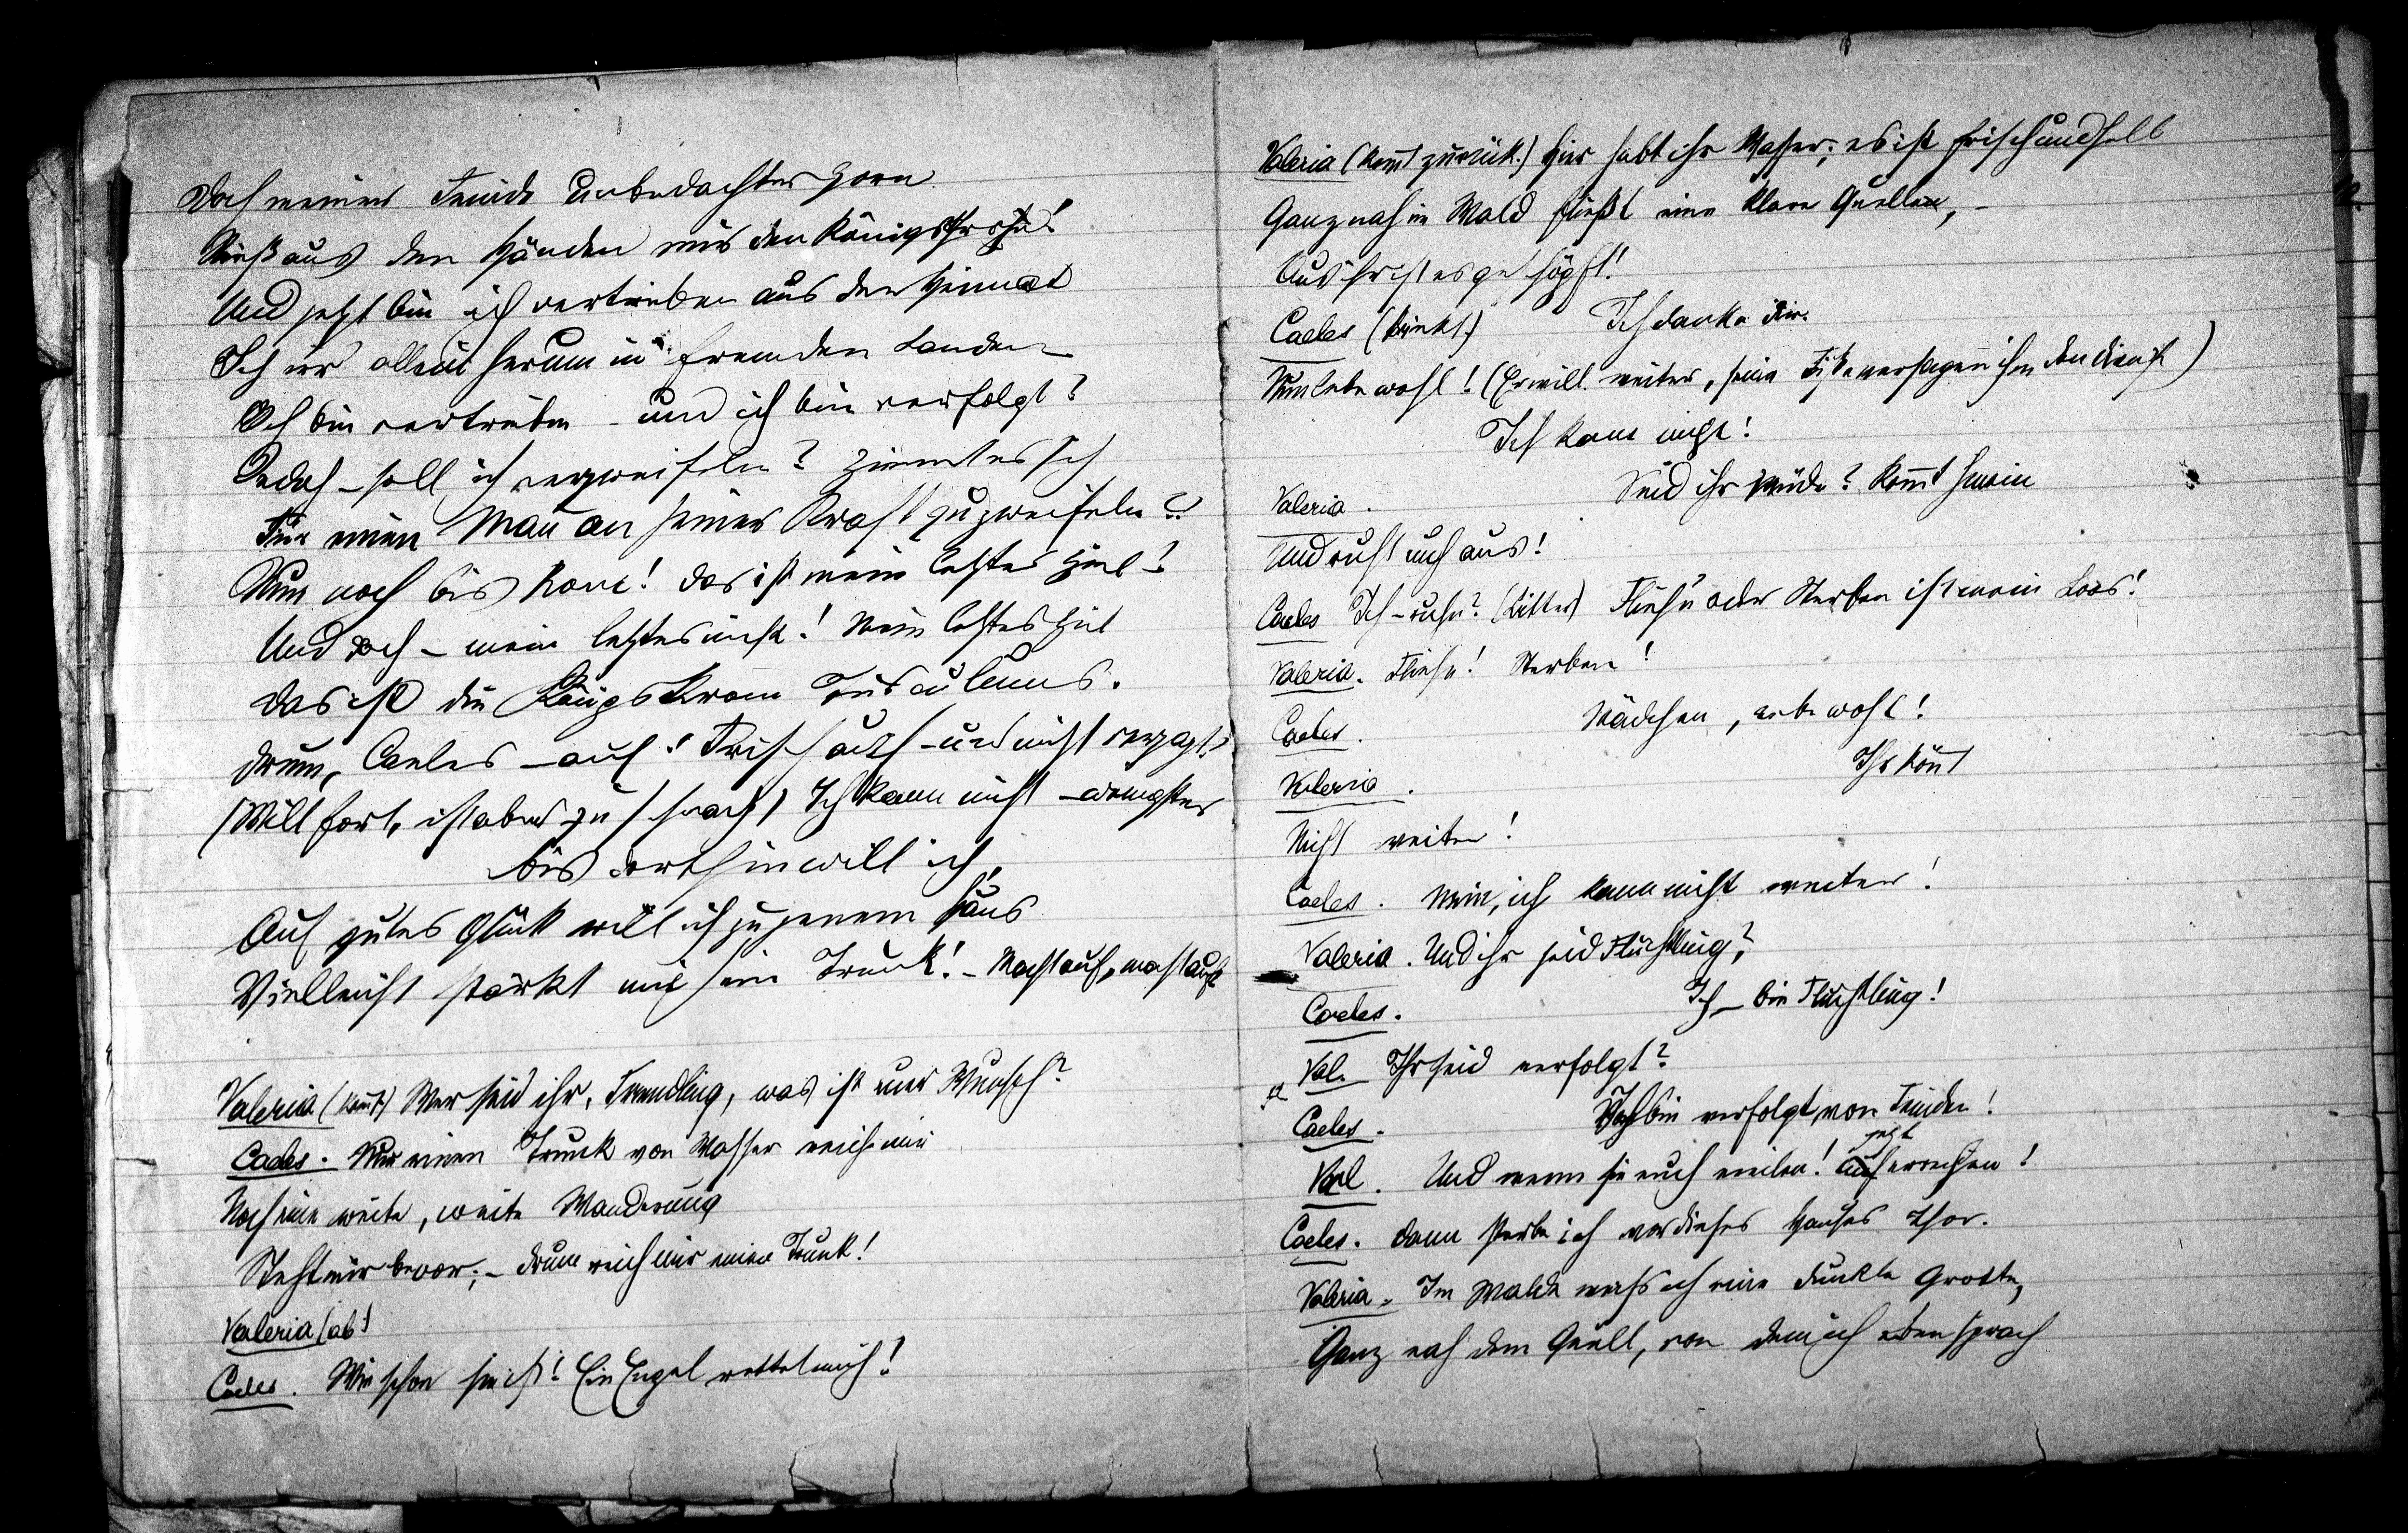 Doch meiner Feinde unbedachter Zorn
Riß aus den Händen mir den Königsthron!
Und jetzt bin ich vertrieben aus der Heimat
Ich irr allein herum in fremden Landen
Ich bin vertrieben – und ich bin verfolgt!
Jedoch – soll ich verzweifeln? Ziemt es sich
Für einen Man̄ an seiner Kraft zu zweifeln?
Nun noch bis Rom! Das ist mein letztes Ziel!
Und doch – mein letztes nicht! Mein letztes Ziel
Das ist die Königskrone Tusculums.
Drum, Caeles – auf! Frisch auf – und nicht verzagt
(Will fort, ist aber zu schwach) Ich kann nicht – wenigstens
bis dorthin will ich,
Auf gutes Glück will ich zu jenem Haus
Vielleicht stärkt mich ein Trunk! – Macht auf, macht auf!
Valeria (kom̄t) Wer seid ihr, Fremdling, was ist euer Wunsch?
Caeles. Nur einen Trunk von Wasser reiche mir
Noch eine weite, weite Wanderung
Steht mir bevor; – drum reich mir einen Trunk!
Valeria (ab)
Caeles. Wie schön sie ist! Ein Engel rettet mich!
Valeria (kom̄t zurück.) Hier habt ihr Wasser; es ist frisch und hell
Ganz nah im Wald fließt eine klare Quelle, –
Aus ihr ist es geschöpft!
Caeles (trinkt.) Ich danke dir.
Nun lebe wohl! (Er will weiter, seine Füße versagen ihm den Dienst)
Ich kann nicht!
Valeria. Seid ihr müde? Kom̄t herein
Und ruht euch aus!
Caeles Ich – ruhn? (Bitter) Fliehn oder Sterben ist mein Loos!
Valeria. Fliehn! Sterben!
Caeles. Mädchen, lebe wohl!
Valeria. Ihr kön̄t
Nicht weiter!
Caeles. Nein, ich kann nicht weiter!
Valeria. Und ihr seid Flüchtling?
Caeles. Ich – bin Flüchtling!
Val. Ihr seid verfolgt?
Caeles. Ich bin verfolgt von Feinden!
Val. Und wenn sie euch ereilen! jetzt erreichen!
Caeles. Dann sterbe ich vor dieses Hauses Thor.
Valeria. Im Walde weiß ich eine dunkle Grotte,
Ganz nah dem Quell, von dem ich eben sprach